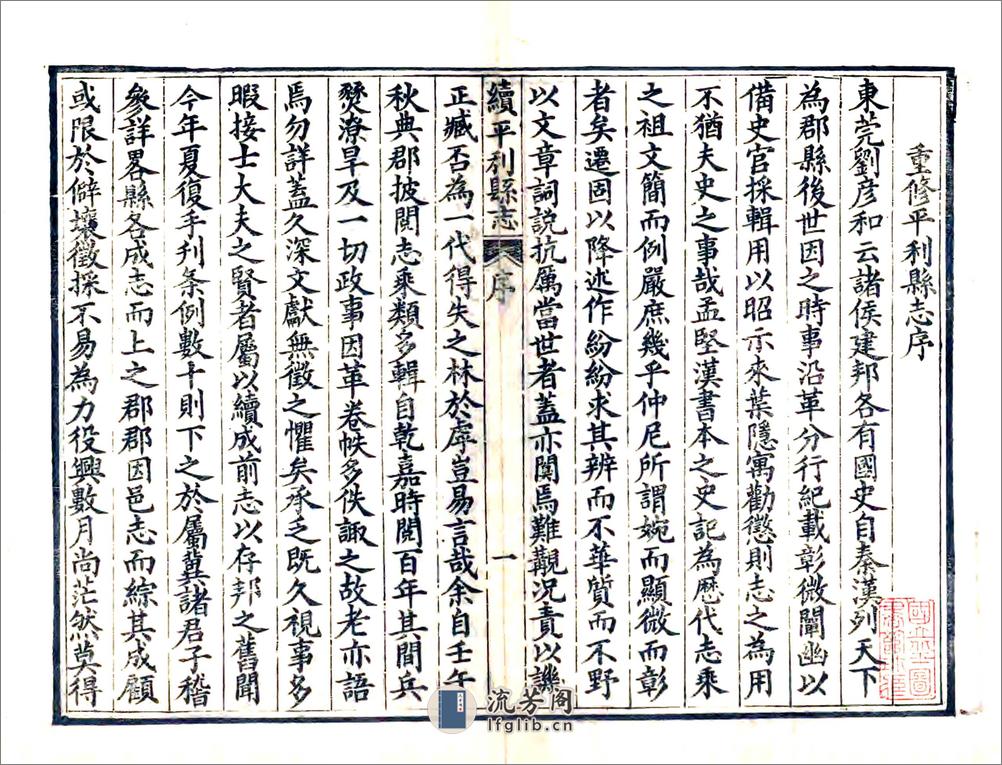 重修平利縣志序
東莞劉彥和云諸侯建邦各有國史自秦漢列天下
為郡縣後世因之時事沿革分行紀載彰微闡幽以
備史官採輯用以昭示來葉隱寓勸懲則志之為用
不猶夫史之事哉孟堅漢書本之史記為歷代志乘
之祖文簡而例嚴庶幾乎仲尼所謂婉而顯微而彰
者矣遷固以降述作紛紛求其辨而不華質而不野
以文章詞說抗厲當世者蓋亦闃焉難觀況責以譏
續平利縣志
序
一
正臧否為一代得失之林於虖豈易言哉余自壬午
秋典郡披閱志乘類多輯自乾嘉時閱百年其間兵
燹潦旱及一切政事因革卷帙多佚諏之故老亦語
焉勿詳蓋久深文獻無徵之懼矣承乏既久視事多
暇接士大夫之賢者屬以續成前志以存邦之舊聞
今年夏復手刊条例數十則下之於屬冀諸君子稽
參詳畧縣各成志而上之郡郡因邑志而綜其成顧
或限於僻壤徵採不易為力役興數月尚茫然莫得
流芳阁
lfglib.cn